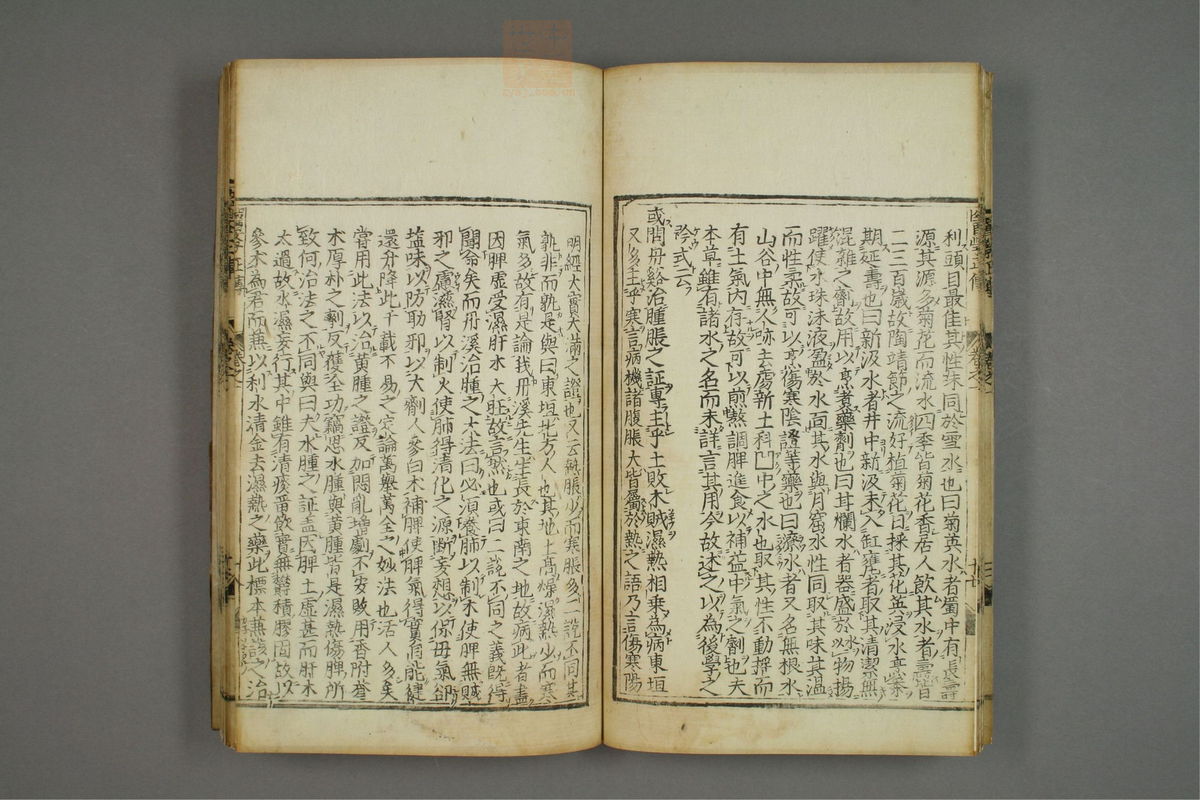 利頭目最佳其性味同於雪水也曰菊英水者蜀中有長壽
源其源多菊花而流水四季皆菊花香居人飲其水者壽皆
二三百歳故陶靖節之流好植菊花日採其花英浸水烹茶
期延壽也曰新汲水者井中新汲未入缸甕者取其清潔無
混雜之劑故用以烹煮藥劑也曰甘爛水者器盛於以物揚
躍使水珠沫液盈於水面其水與月窟水性同取其味甘温
而性柔故可以烹傷寒陰證等藥也曰潦水者又名無根水
山谷中無人跡去處新土科凹中之水也取其性不動搖而
有土氣内存故可以煎熬調脾進食以補益中氣之劑也夫
本草雖有諸水之名而未詳言其用今故述之以為後學之
矜式云
或問丹谿治腫脹之証專主乎土敗木賊濕熱相乗為病東垣
又多主乎寒言病機諸腹脹大皆屬於熱之語乃言傷寒陽
明經大實大滿之證也又云熱脹少而寒脹多二說不同其
孰非而孰是與曰東垣北方人也其地土髙燥濕熱少而寒
氣多故有是論我丹溪先生生長於東南之地故病此者盡
因脾虚受濕肝木大旺故言然也或曰二說不同之義既得
聞命矣而丹溪治腫之大法曰必須養肺以制木使脾無賊
邪之慮滋腎以制火使肺得清化之源斷妄想以保母氣却
塩味以防助邪以大劑人參白木補脾使脾氣得實自能健
運升降此千載不易之定論萬舉萬全之妙法也活人多矣
嘗用此法以治黄腫之證反加悶亂増劇不安敗用香附蒼
木厚朴之劑反獲全功竊思水腫與黄腫皆是濕熱傷脾所
致何治法之不同與曰夫水腫之証盖因脾土虚甚而肝木
太過故水濕妄行其中雖有清痰畱飲實無欝積膠固故以
參木為君而兼以利水清金去濕熱之藥此標本兼該之治